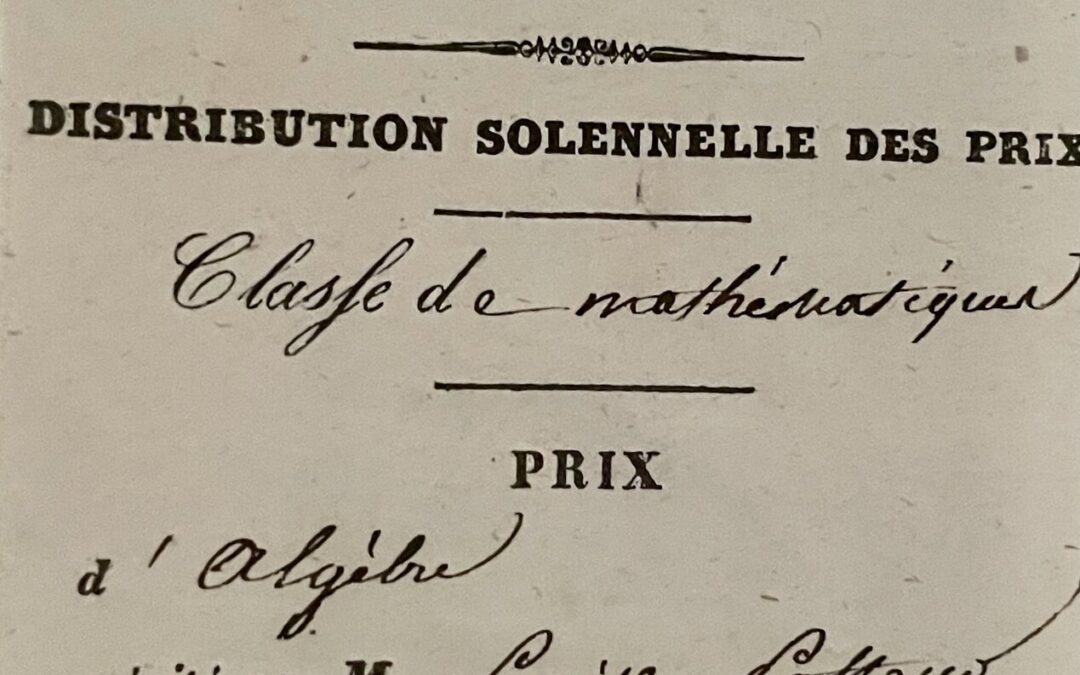 DISTRIBUTION SOLENNELLE DES PRIX
Classe de mathématiques
PRIX
d'Algèbre
M.